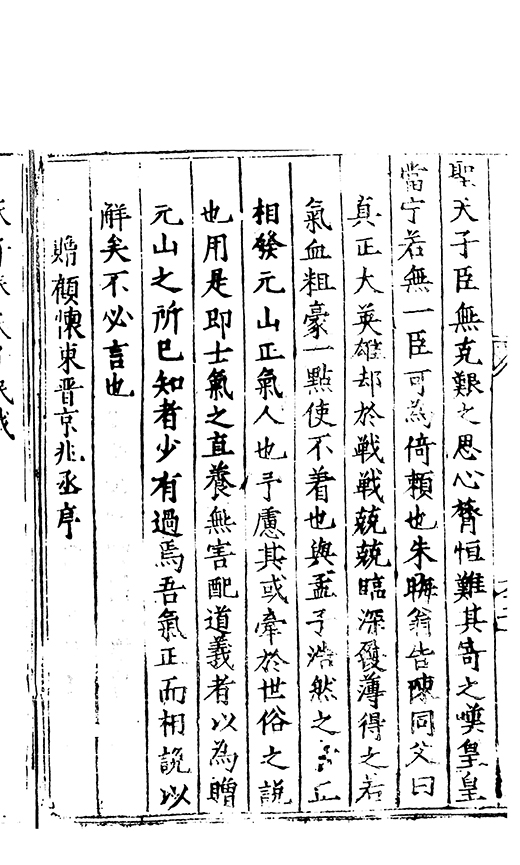 聖天子臣無克艱之思心膂恒難其寄之嘆皇皇
當宁若無一臣可為倚賴也朱晦翁告陳同父曰
真正大英雄却於戰戰兢兢臨深履薄得之若
氣血粗豪一點使不着也與孟子浩然之正
相發元山正氣人也予慮其或牽於世俗之說
也用是即士氣之直養無害配道義者以為贈
元山之所已知者少有過焉吾氣正而相說以
解矣不必言也
贈顧懷東晋京兆丞序